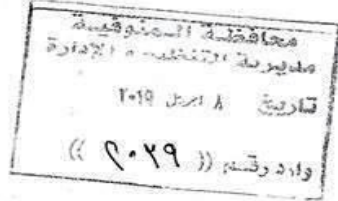 محافظة المنوفية
مديرية التنظيم و الإدارة
تاريخ ٨ ابريل ٢٠١٩
وارد رقم (( ٢٠٢٩ ))